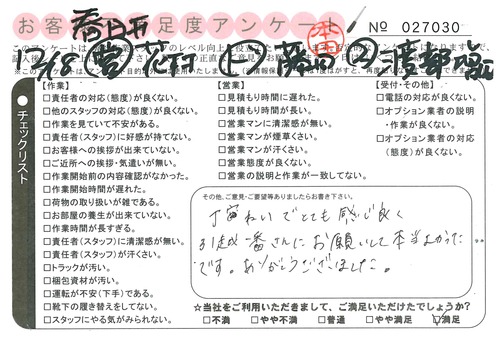 お客様満足度アンケート
No 027030
チェックリスト
【作業】
□責任者の対応(態度)が良くない。
□他のスタッフの対応(態度)が良くない。
□作業を見ていて不安がある。
□責任者(スタッフ)に好感が持てない。
□お客様への挨拶が出来ていない。
□ご近所への挨拶・気遣いが無い。
□作業開始前の内容確認がなかった。
□作業開始時間が遅れた。
□荷物の取り扱いが雑である。
□お部屋の養生が出来ていない。
□作業時間が長すぎる。
□責任者(スタッフ)に清潔感が無い。
□責任者(スタッフ)が汗くさい。
□トラックが汚い。
□梱包資材が汚い。
□運転が不安(下手)である。
□靴下の履き替えをしてない。
□スタッフにやる気がみられない。
【営業】
□見積もり時間に遅れた。
□見積もり時間が長い。
□営業マンに清潔感が無い。
□営業マンが煙草くさい。
□営業マンが汗くさい。
□営業態度が良くない。
□営業の説明と作業が一致してない。
【受付・その他】
□電話の対応が良くない。
□オプション業者の説明
・作業が良くない。
□オプション業者の対応
(態度)が良くない。
その他、ご意見・ご要望等ありましたらお書き下さい。
丁寧ねいでとても感じ良く
引越一番さんにお願いして本当よかった
です。ありがとうございました。
☆当社をご利用いただきまして、ご満足いただけたでしょうか?
□不満 □やや不満 □普通 □やや満足 ☑満足